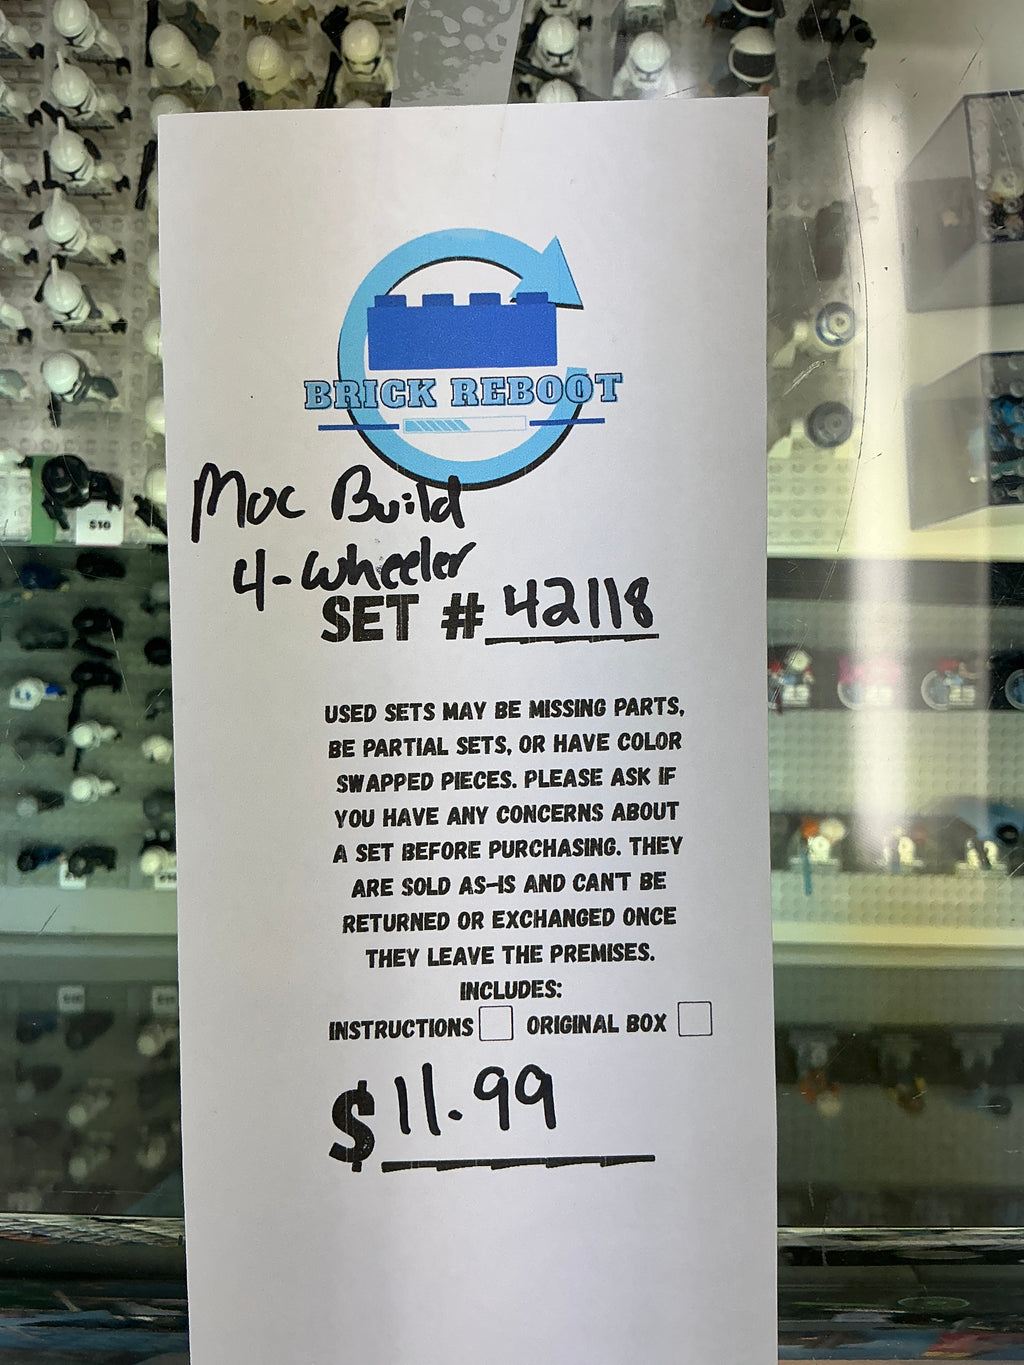 BRICK REBOOT
Moc Build
4-wheeler
SET # 42118
USED SETS MAY BE MISSING PARTS,
BE PARTIAL SETS, OR HAVE COLOR
SWAPPED PIECES. PLEASE ASK IF
YOU HAVE ANY CONCERNS ABOUT
A SET BEFORE PURCHASING. THEY
ARE SOLD AS-IS AND CAN'T BE
RETURNED OR EXCHANGED ONCE
THEY LEAVE THE PREMISES.
INCLUDES:
INSTRUCTIONS ORIGINAL BOX
$11.99
$10